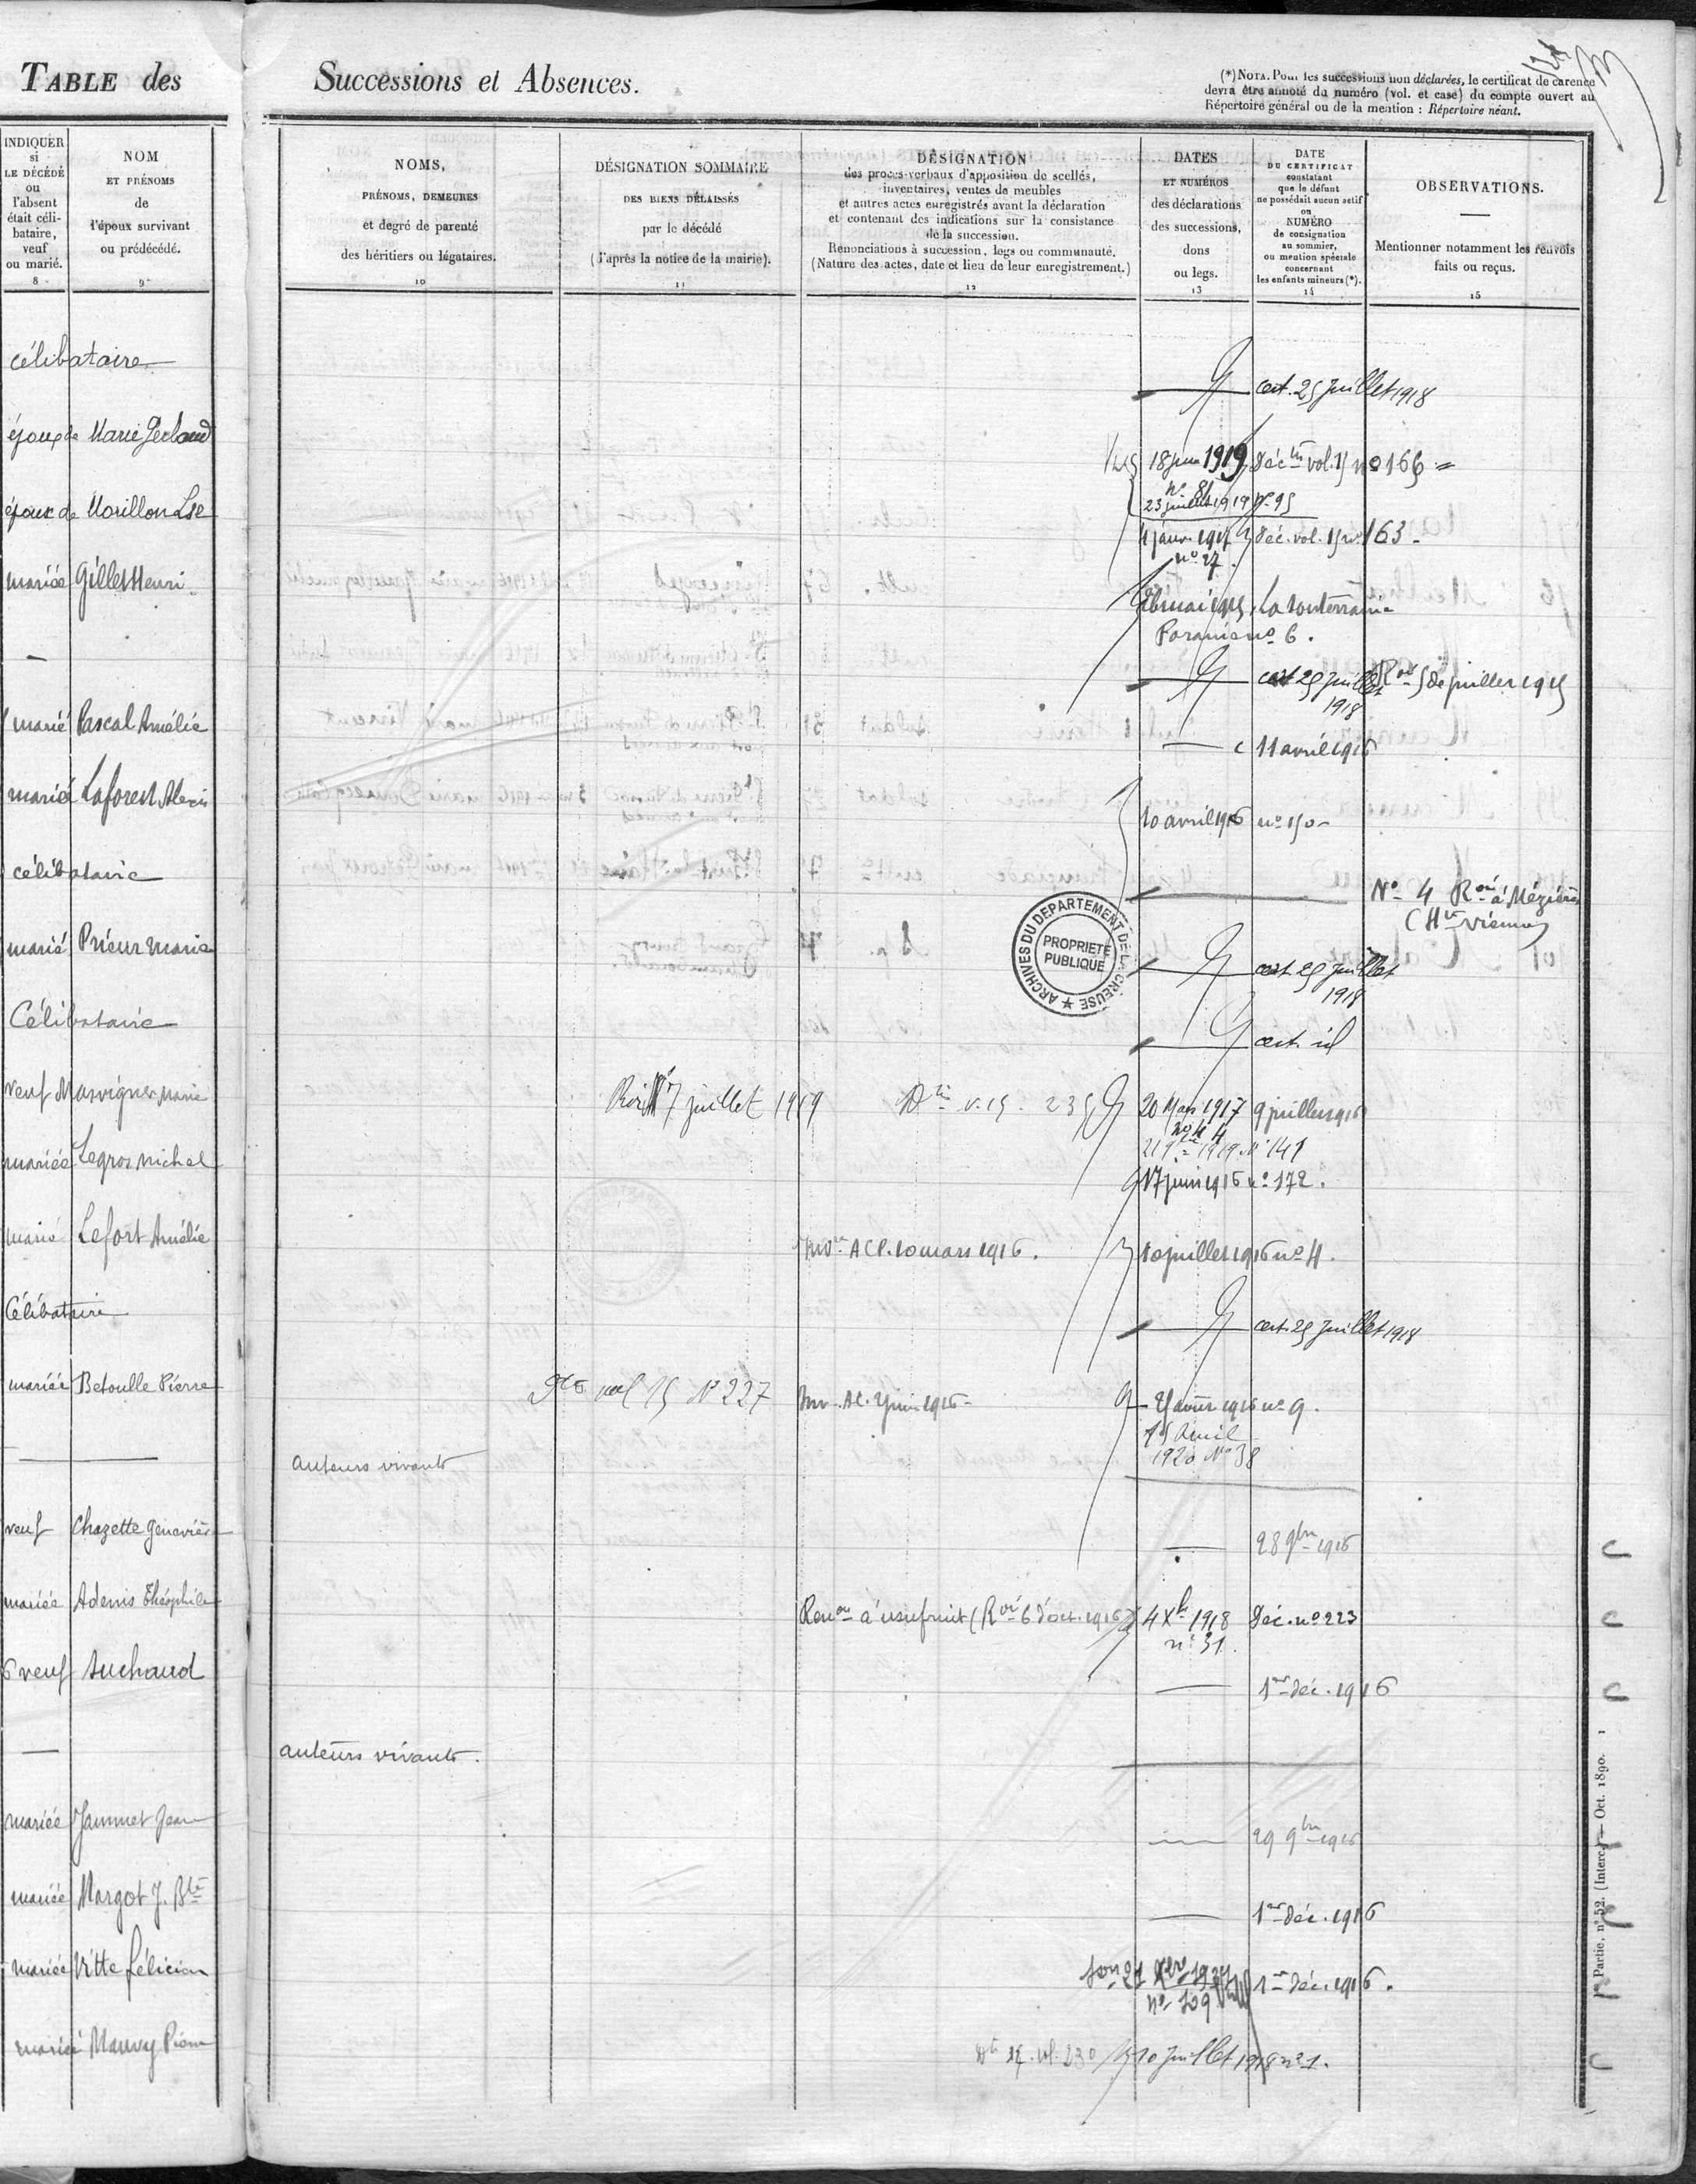 TABLE des Successions et Absences.
(*) NOTA. Pour les successions non déclarées, le certificat de carence
devra être annoté du numéro (vol. et case) du compte ouvert au
Répertoire général ou de la mention : Répertoire néant.
INDIQUER
si
LE DÉCÉDÉ
ou
l'absent
était céli-
bataire,
veuf
ou marié.
8
NOM
ET PRÉNOMS
de
l'époux survivant
ou prédécédé.
9
NOMS,
PRÉNOMS, DEMEURES
et degré de parenté
des héritiers ou légataires.
10
DÉSIGNATION SOMMAIRE
DES BIENS DÉLAISSÉS
par le décédé
(d'après la notice de la mairie).
11
DÉSIGNATION
des procès-verbaux d'apposition de scellés,
inventaires, ventes de meubles
et autres actes enregistrés avant la déclaration
et contenant des indications sur la consistance
de la succession.
Renonciations à succession, legs ou communauté.
(Nature des actes, date et lieu de leur enregistrement.)
12
DATES
ET NUMÉROS
des déclarations
des successions,
dons
ou legs.
13
DATE
DU CERTIFICAT
constatant
que le défunt
ne possédait aucun actif
ou
NUMÉRO
de consignation
au sommier,
ou mention spéciale
concernant
les enfants mineurs (*).
14
OBSERVATIONS.
Mentionner notamment les renvois
faits ou reçus.
15
célibataire
cert. 25 Juillet 1918
époux de Marie Gerbaud
18 juin 1919 Déc vol. 15 no 166
no 81
23 juillet 1919 no 95
époux de Morillon Lse
4 janv. 1917 Déc. vol. 15 no 163
no 27.
mariée Gilles Henri
La Souterraine
no 6.
cert 25 Juillet
1918
5 de juillet 1915
marié Pascal Amélie
11 avril 1916
mariée Laforest Alexis
10 avril 1916 no 150
célibataire
No 4 Roi à Mézières
(Hte Vienne)
marié Prieur Marie
cert 25 Juillet
1918
Célibataire
cert. id
veuf Masvigner Marie
7 juillet 1919
v. 15. 235
20 Mars 1917 9 juillet 1916
no 44
1919 No 141
mariée Legros Michel
17 juin 1916 no 172.
marié Lefort Amélie
Invre ACP. 10 mars 1916.
10 juillet 1916 no 4.
Célibataire
cert. 25 Juillet 1918
mariée Betoulle Pierre
vol 15 No 227
1916 no 9.
15 Avril
1920 No 38
auteurs vivants
veuf Chazette Geneviève
28 9bre 1916
mariée Adenis Théophile
Renon à usufruit (Roi 6 d'oct. 1916)
4 Xbre 1918 Déc. no 223
no 31.
veuf Auchaud
1er déc. 1916
auteurs vivants.
mariée Jammet Jean
29 9bre 1916
mariée Margot J. Bte
1er déc. 1916
mariée Vitte Félicien
no 109
1er déc. 1916.
mariée Mauvy Pierre
vol. 230
10 Juillet 1918 no 1.
ARCHIVES DU DEPARTEMENT DE LA CREUSE
PROPRIETE
PUBLIQUE
1re Partie, no 52. (Interc.) — Oct. 1890. 1